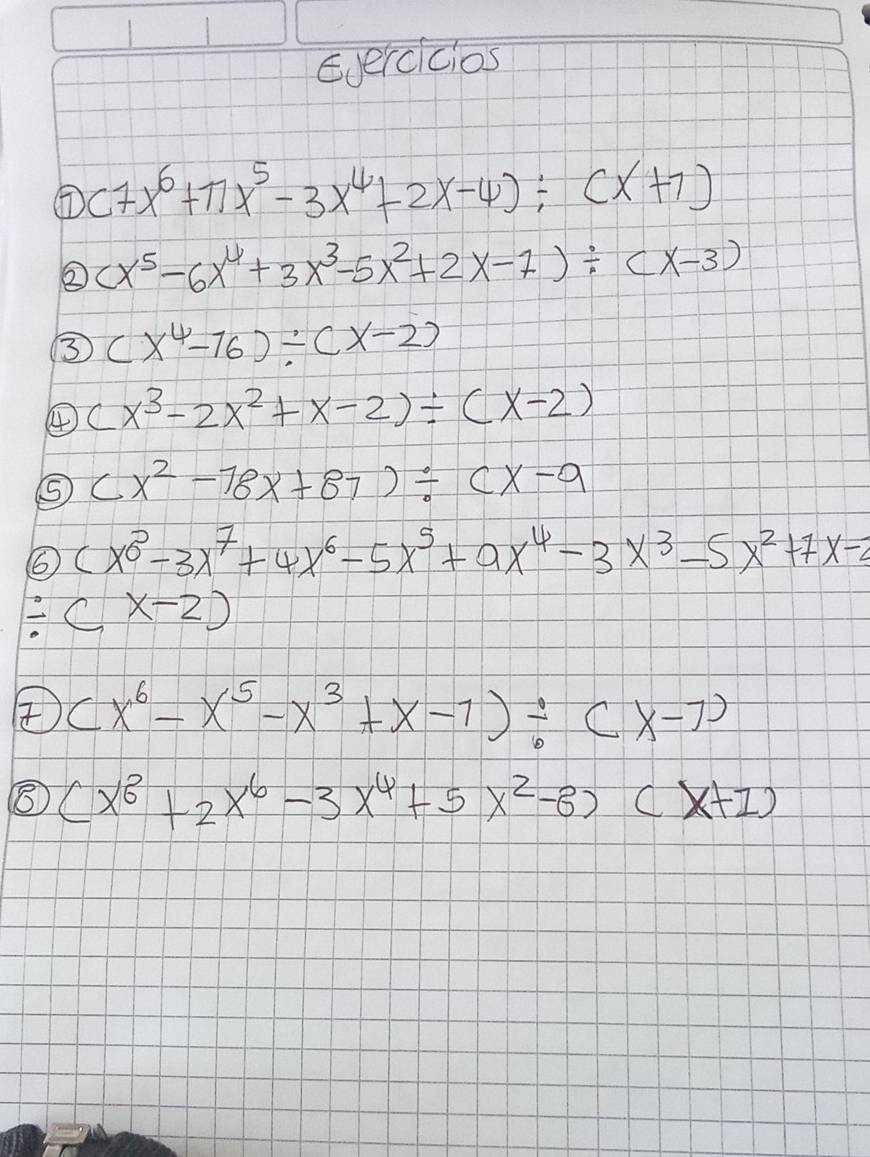 Ejercicios
① (7x⁶+11x⁵-3x⁴+2x-4) ÷ (x+1)
② (x⁵-6x⁴+3x³-5x²+2x-1) ÷ (x-3)
③ (x⁴-16) ÷ (x-2)
④ (x³-2x²+x-2) ÷ (x-2)
⑤ (x²-18x+81) ÷ (x-9
⑥ (x⁸-3x⁷+4x⁶-5x⁵+9x⁴-3x³-5x²+7x-2
÷ (x-2)
⑦ (x⁶-x⁵-x³+x-1) ÷ (x-1)
⑧ (x⁸+2x⁶-3x⁴+5x²-8) (x+1)